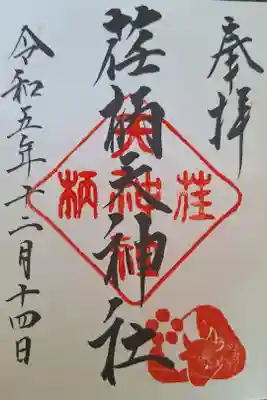 奉拝
荏柄天神社
荏柄天神社
令和五年十二月十四日